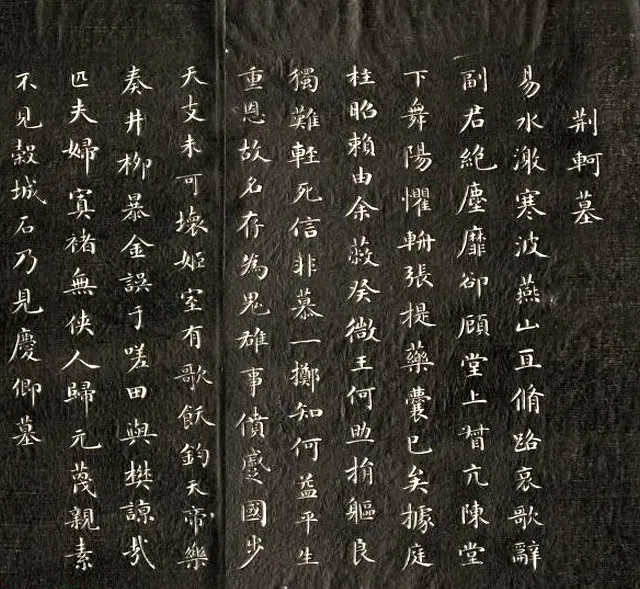 荆軻墓
易水激寒波燕山亙脩路哀歌辭
副君絶塵靡卻顧堂上督亢陳堂
下舞陽懼軿張提藥囊已矣據庭
柱昭賴由余蔽癸微王何捐軀良
獨難輕死信非慕一擲知何益平生
重恩故名存為鬼雄事僨蹙國步
天支未可壞姬室有歌飫鈞天帝樂
奏井柳暴金誤于嗟田與樊諒哉
匹夫婦寘褚無俠人歸元蔑親素
不見穀城石乃見慶卿墓